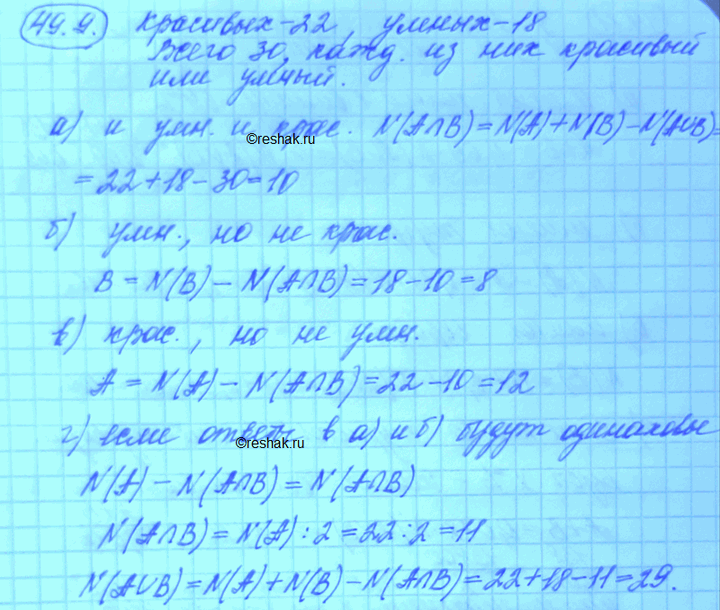 49.9. Красивых-22, умных-18
Всего 30, кажд. из них красивый
или умный.
а) и умн. и крас. N(A∩B)=N(A)+N(B)-N(A∪B)=
©reshak.ru
=22+18-30=10
б) умн., но не крас.
B=N(B)-N(A∩B)=18-10=8
в) крас., но не умн.
A=N(A)-N(A∩B)=22-10=12
г) если ответы в а) и б) будут одинаковые
©reshak.ru
N(A)-N(A∩B)=N(A∩B)
N(A∩B)=N(A):2=22:2=11
N(A∪B)=N(A)+N(B)-N(A∩B)=22+18-11=29.